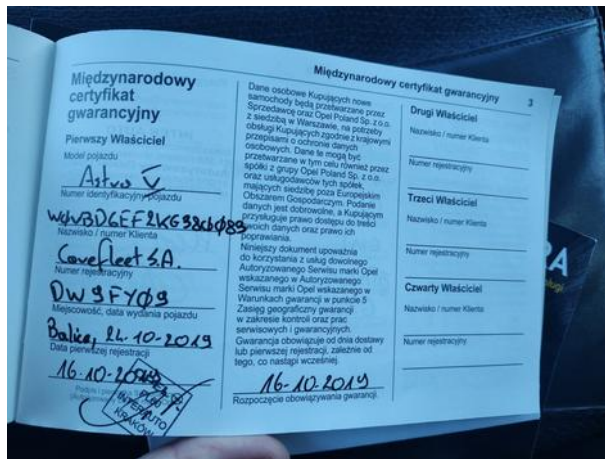 Międzynarodowy certyfikat gwarancyjny
3
Międzynarodowy
certyfikat
gwarancyjny
Pierwszy Właściciel
Model pojazdu
Astra V
Numer identyfikacyjny pojazdu
Nazwisko / numer Klienta
Carefleet S.A.
Numer rejestracyjny
DW9FY09
Miejscowość, data wydania pojazdu
Balice, 24-10-2019
Data pierwszej rejestracji
16-10-2019
KRAKÓW
Dane osobowe Kupujących nowe
samochody będą przetwarzane przez
Sprzedawcę oraz Opel Poland Sp. z o.o.
z siedzibą w Warszawie, na potrzeby
obsługi Kupujących zgodnie z krajowymi
przepisami o ochronie danych
osobowych. Dane te mogą być
przetwarzane w tym celu również przez
spółki z grupy Opel Poland Sp. z o.o.
oraz usługodawców tych spółek,
mających siedzibę poza Europejskim
Obszarem Gospodarczym. Podanie
danych jest dobrowolne, a Kupującym
przysługuje prawo dostępu do treści
swoich danych oraz prawo ich
poprawiania.
Niniejszy dokument upoważnia
do korzystania z usług dowolnego
Autoryzowanego Serwisu marki Opel
wskazanego w Autoryzowanego
Serwisu marki Opel wskazanego w
Warunkach gwarancji w punkcie 5
Zasięg geograficzny gwarancji
w zakresie kontroli oraz prac
serwisowych i gwarancyjnych.
Gwarancja obowiązuje od dnia dostawy
lub pierwszej rejestracji, zależnie od
tego, co nastąpi wcześniej.
16-10-2019
Rozpoczęcie obowiązywania gwarancji.
Drugi Właściciel
Nazwisko / numer Klienta
Numer rejestracyjny
Trzeci Właściciel
Nazwisko / numer Klienta
Numer rejestracyjny
Czwarty Właściciel
Nazwisko / numer Klienta
Numer rejestracyjny